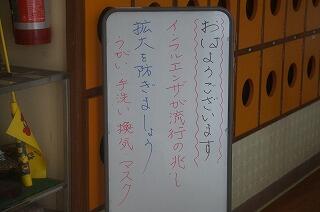 おはようございます
インフルエンザが流行の兆し
拡大を防ぎましょう
うがい 手洗い 換気 マスク